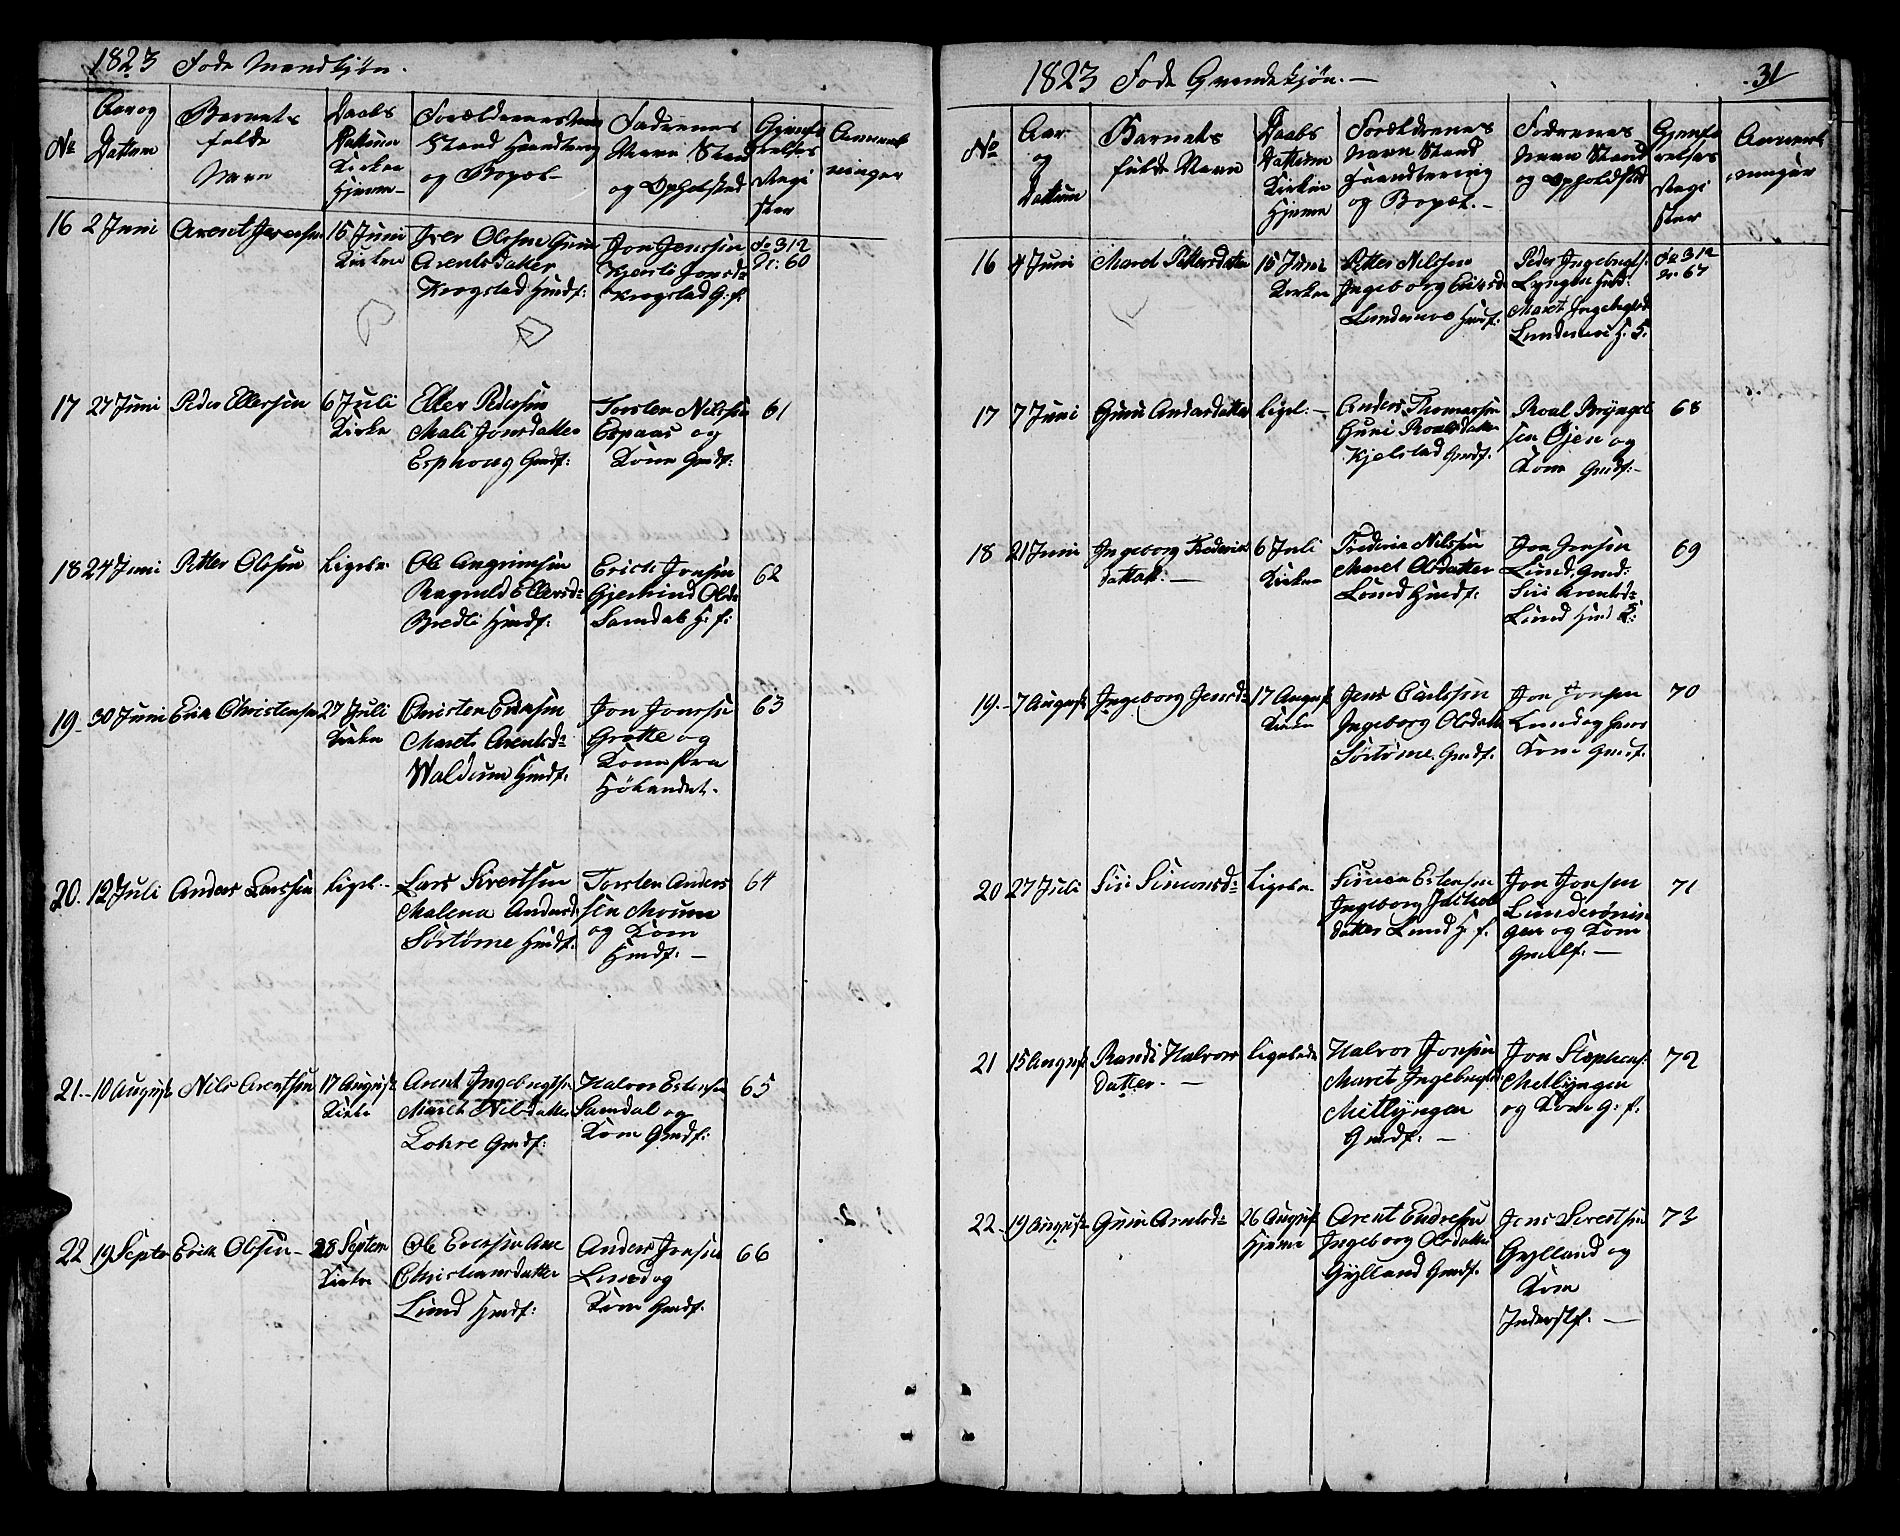 1823 Føde Mandkjøn.
No
Aar og
Dattum
Barnets
fulde
Navn
Daabs
Dattum
Kirken
Hjemme
Forældrenes Navn
Stand Haandtering
og Bopæl
Fadrenes
Navn Stand
og Opholsted
Gjenfø
relses
Regi
ster
Anmerk
ninger
16 2 Juni Arent Iversen 15 Juni
Kirken
Iver Olssen Guru
Arentsdatter
Krogstad Huusf:
Jon Jonssen
Kjersti Jonsd:
Krogstad G: f:
Fo 312
Nr: 60
17 27 Juni Peder Ellefsen 6 Juli
Kirke
Ellev Pedersen
Mali Jonsdatter
Esphoug Gmdf:
Torsten Nilssen
Espaas og
Kone Gmdf:
61
18 24 Juni Petter Olssen Ligele.
Ole Angrimsen
Ragnild Ellevsd:
Bredli Huusf:
Erich Jonsen
Gjertrud Olsd:
Samdal H: f:
62
19. 30 Juni Erik Christensen 27 Juli
Kirke
Christen Ericksen
Maret Arentsd:
Waldum Huusf:
Jon Jonssen
Grøtte og
Kone fra
Hølandet.
63
20. 12 Juli Anders Larssen Ligel.
Lars Sivertsen
Malena Andersd:
Sørtømme Huusf.
Torsten Anders
sen Moum
og Kone
Huusf: —
64
21. 10 August Nils Arentsen 17 August
Kirke
Arent Ingebrigtsen
Maret Nilsdatter
Lohre Gmdf:
Halvor Estensen
Samdal og
Kone Gmdf:
65
22 19 Septr Erik Olssen 28 Septem
Kirke
Ole Ericksen Ane
Christiansdatter
Lund Huusf:
Anders Jonsen
Lund og
Kone Gmdf.
66
1823 Føde Qvindekjøn. —
31
No
Aar
og
Dattum
Barnets
fulde Navn
Daabs
Dattum
Kirken
Hjemme
Forældrenes
Navn Stand
Haandtering
og Bopæl. —
Fadrenes
Navn Stand
og Opholdsted
Gjenfø
relses
Regi
ster
Anmerk
ninger
16 4 Juni Maret Pettersdatter 15 Juni
Kirken
Petter Nilssen
Ingeborg Ericksd:
Lundemoe Huusf.
Peder Ingebrigts:
Lyngen Huusf:
Maret Ingebrigtsd
Lundemoe H. f.
Fo 312
Nr 67
17 7 Juni Guru Andersdatter Ligel. —
Anders Thomassen
Guru Roalsdatter
Kjelstad Gmdf.
Roal Bryngel
sen Øien og
Kone Gmdf: —
68
18 21 Juni Ingeborg Frederiks
datter. —
6 Juli
Kirken
Frederik Nilssen
Maret Olsdatter
Lund Huusf:
Jon Jonsen
Lund, Gmd:
Siri Arentsd:
Lund Huusf:
69
19. 7 August Ingeborg Jensd: 17 August
Kirke
Jens Carlssen
Ingeborg Olsdatter
Sørtømme. Gmdf.
Jon Jonsen
Lund og hans
Kone Gmdf.
70
20 27 Juli Siri Simonsd: Ligele.
Simen Estensen
Ingeborg Jacobs
datter Lund H: f.
Jon Jonsen
Lunderønin
gen og Kone
Gmdf: —
71
21 15 August Randi Halvors
datter. —
Ligeledes
Halvor Jonsen
Maret Ingebrigtsd
Metlyngen
Gmdf: —
Jon Stephens
Metlyngen
og Kone G: f.
72
22. 19 August Guru Arentsd: 26 August
Hjemme
Arent Endresen
Ingeborg Olsdatter
Gylland Gmdf.
Jens Sivertsen
Gylland og
Kone
Inderstf. —
73